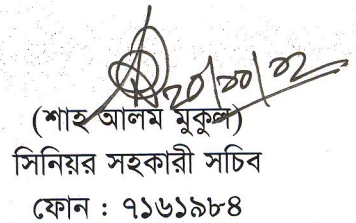 ২০/১০/১২
(শাহ আলম মুকুল)
সিনিয়র সহকারী সচিব
ফোন : ৭১৬১৯৮৪